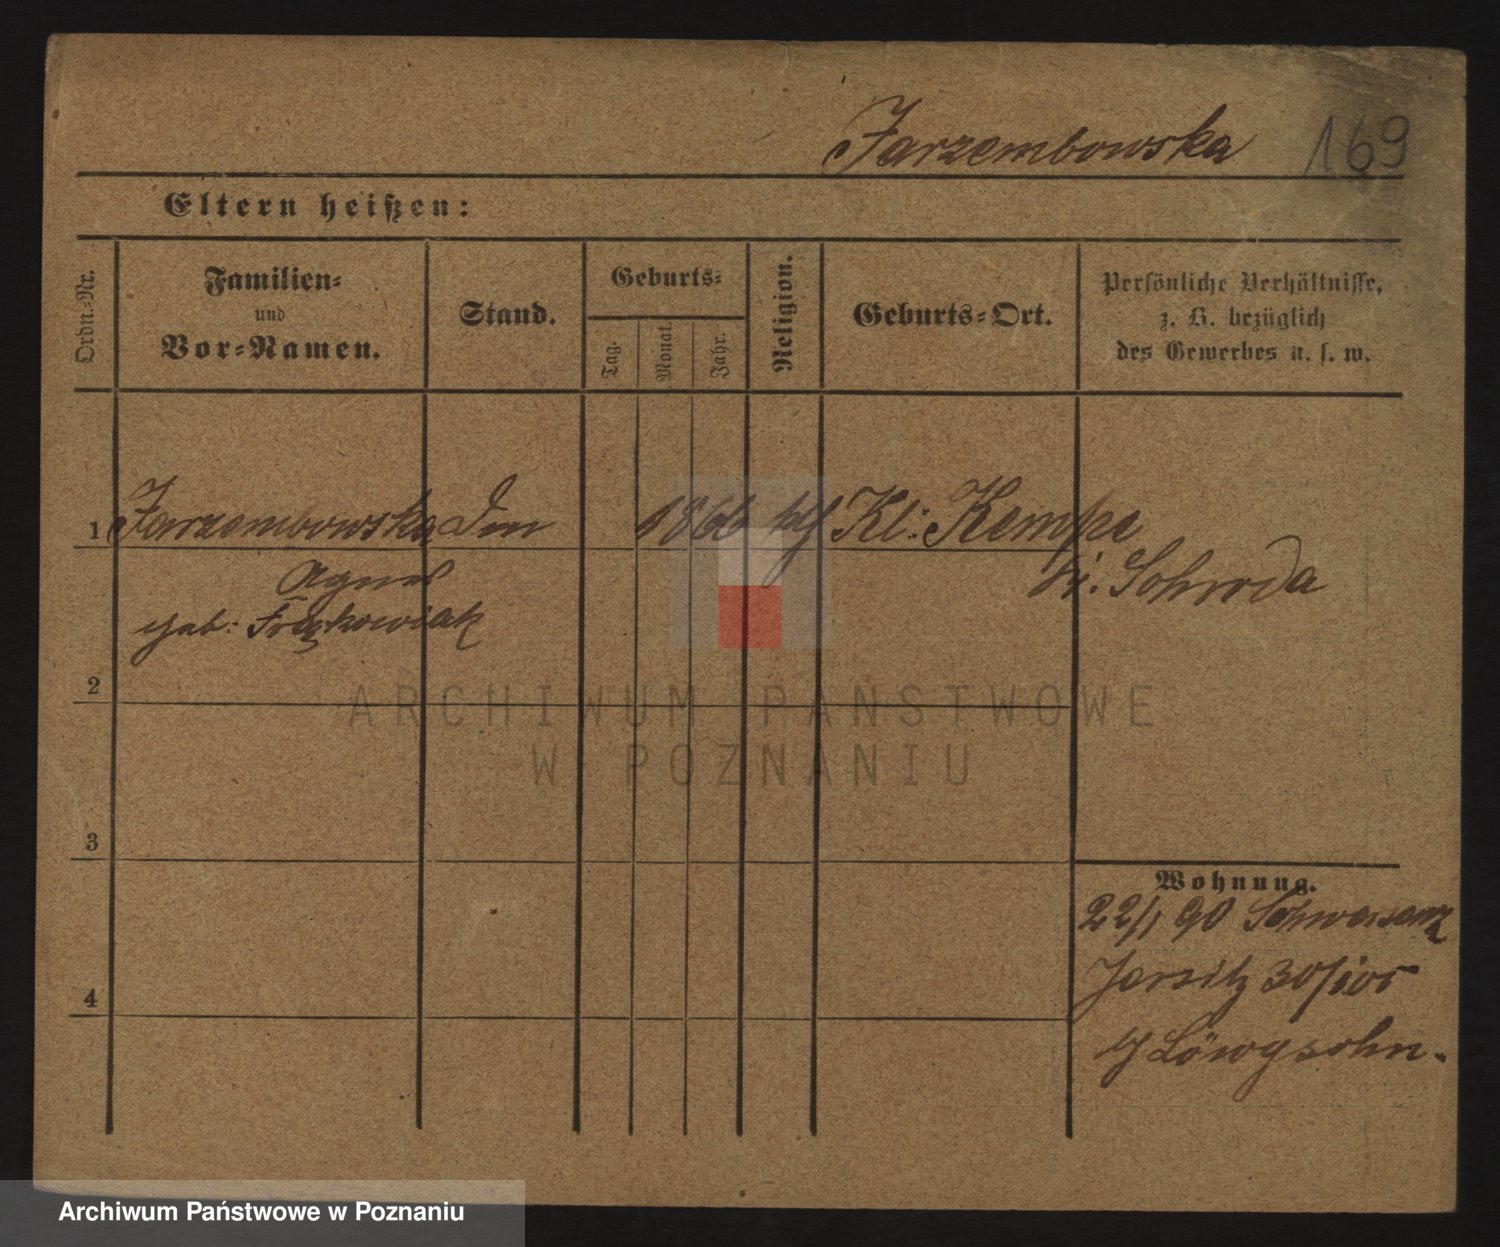 Jarzembowska 169
Eltern heißen:
Ordn.-Nr.
Familien-
und
Vor-Namen.
Stand.
Geburts-
Tag.
Monat.
Jahr.
Religion.
Geburts-Ort.
Persönliche Verhältnisse,
z. B. bezüglich
des Gewerbes u. s. w.
1 Jarzembowska 1866 Kl: Kempa
Agnes
geb: Frąckowiak
Kr. Schroda
2
ARCHIWUM PAŃSTWOWE
W POZNANIU
3
Wohnung.
22/1 90 Schwersenz
4
Jersitz 30/
Archiwum Państwowe w Poznaniu